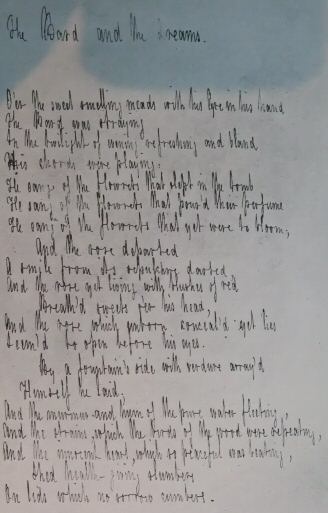 The Bard and the Dreams.
O'er the sweet smelling meads with his lyre in his hand
The Bard was straying
In the twilight of evening refreshing and bland
His chords were playing:
He sang of the flowrets that slept in the tomb
He sang of the flowrets that pour'd their perfume
He sang of the flowrets that yet were to bloom,
And the rose departed
A smile from its sepulchre darted,
And the rose yet living with blushes of red
Breath'd sweets o'er his head,
And the rose which unborn conceal'd yet lies
Seem'd to open before his eyes.
By a fountain's side with verdure array'd
Himself he laid.
And the murmur and hum of the pure water fleeting,
And the strains which the birds of the wood were repeating,
And the innocent heart, which so peaceful was beating,
Shed health-giving slumbers
On lids which no sorrow cumbers.